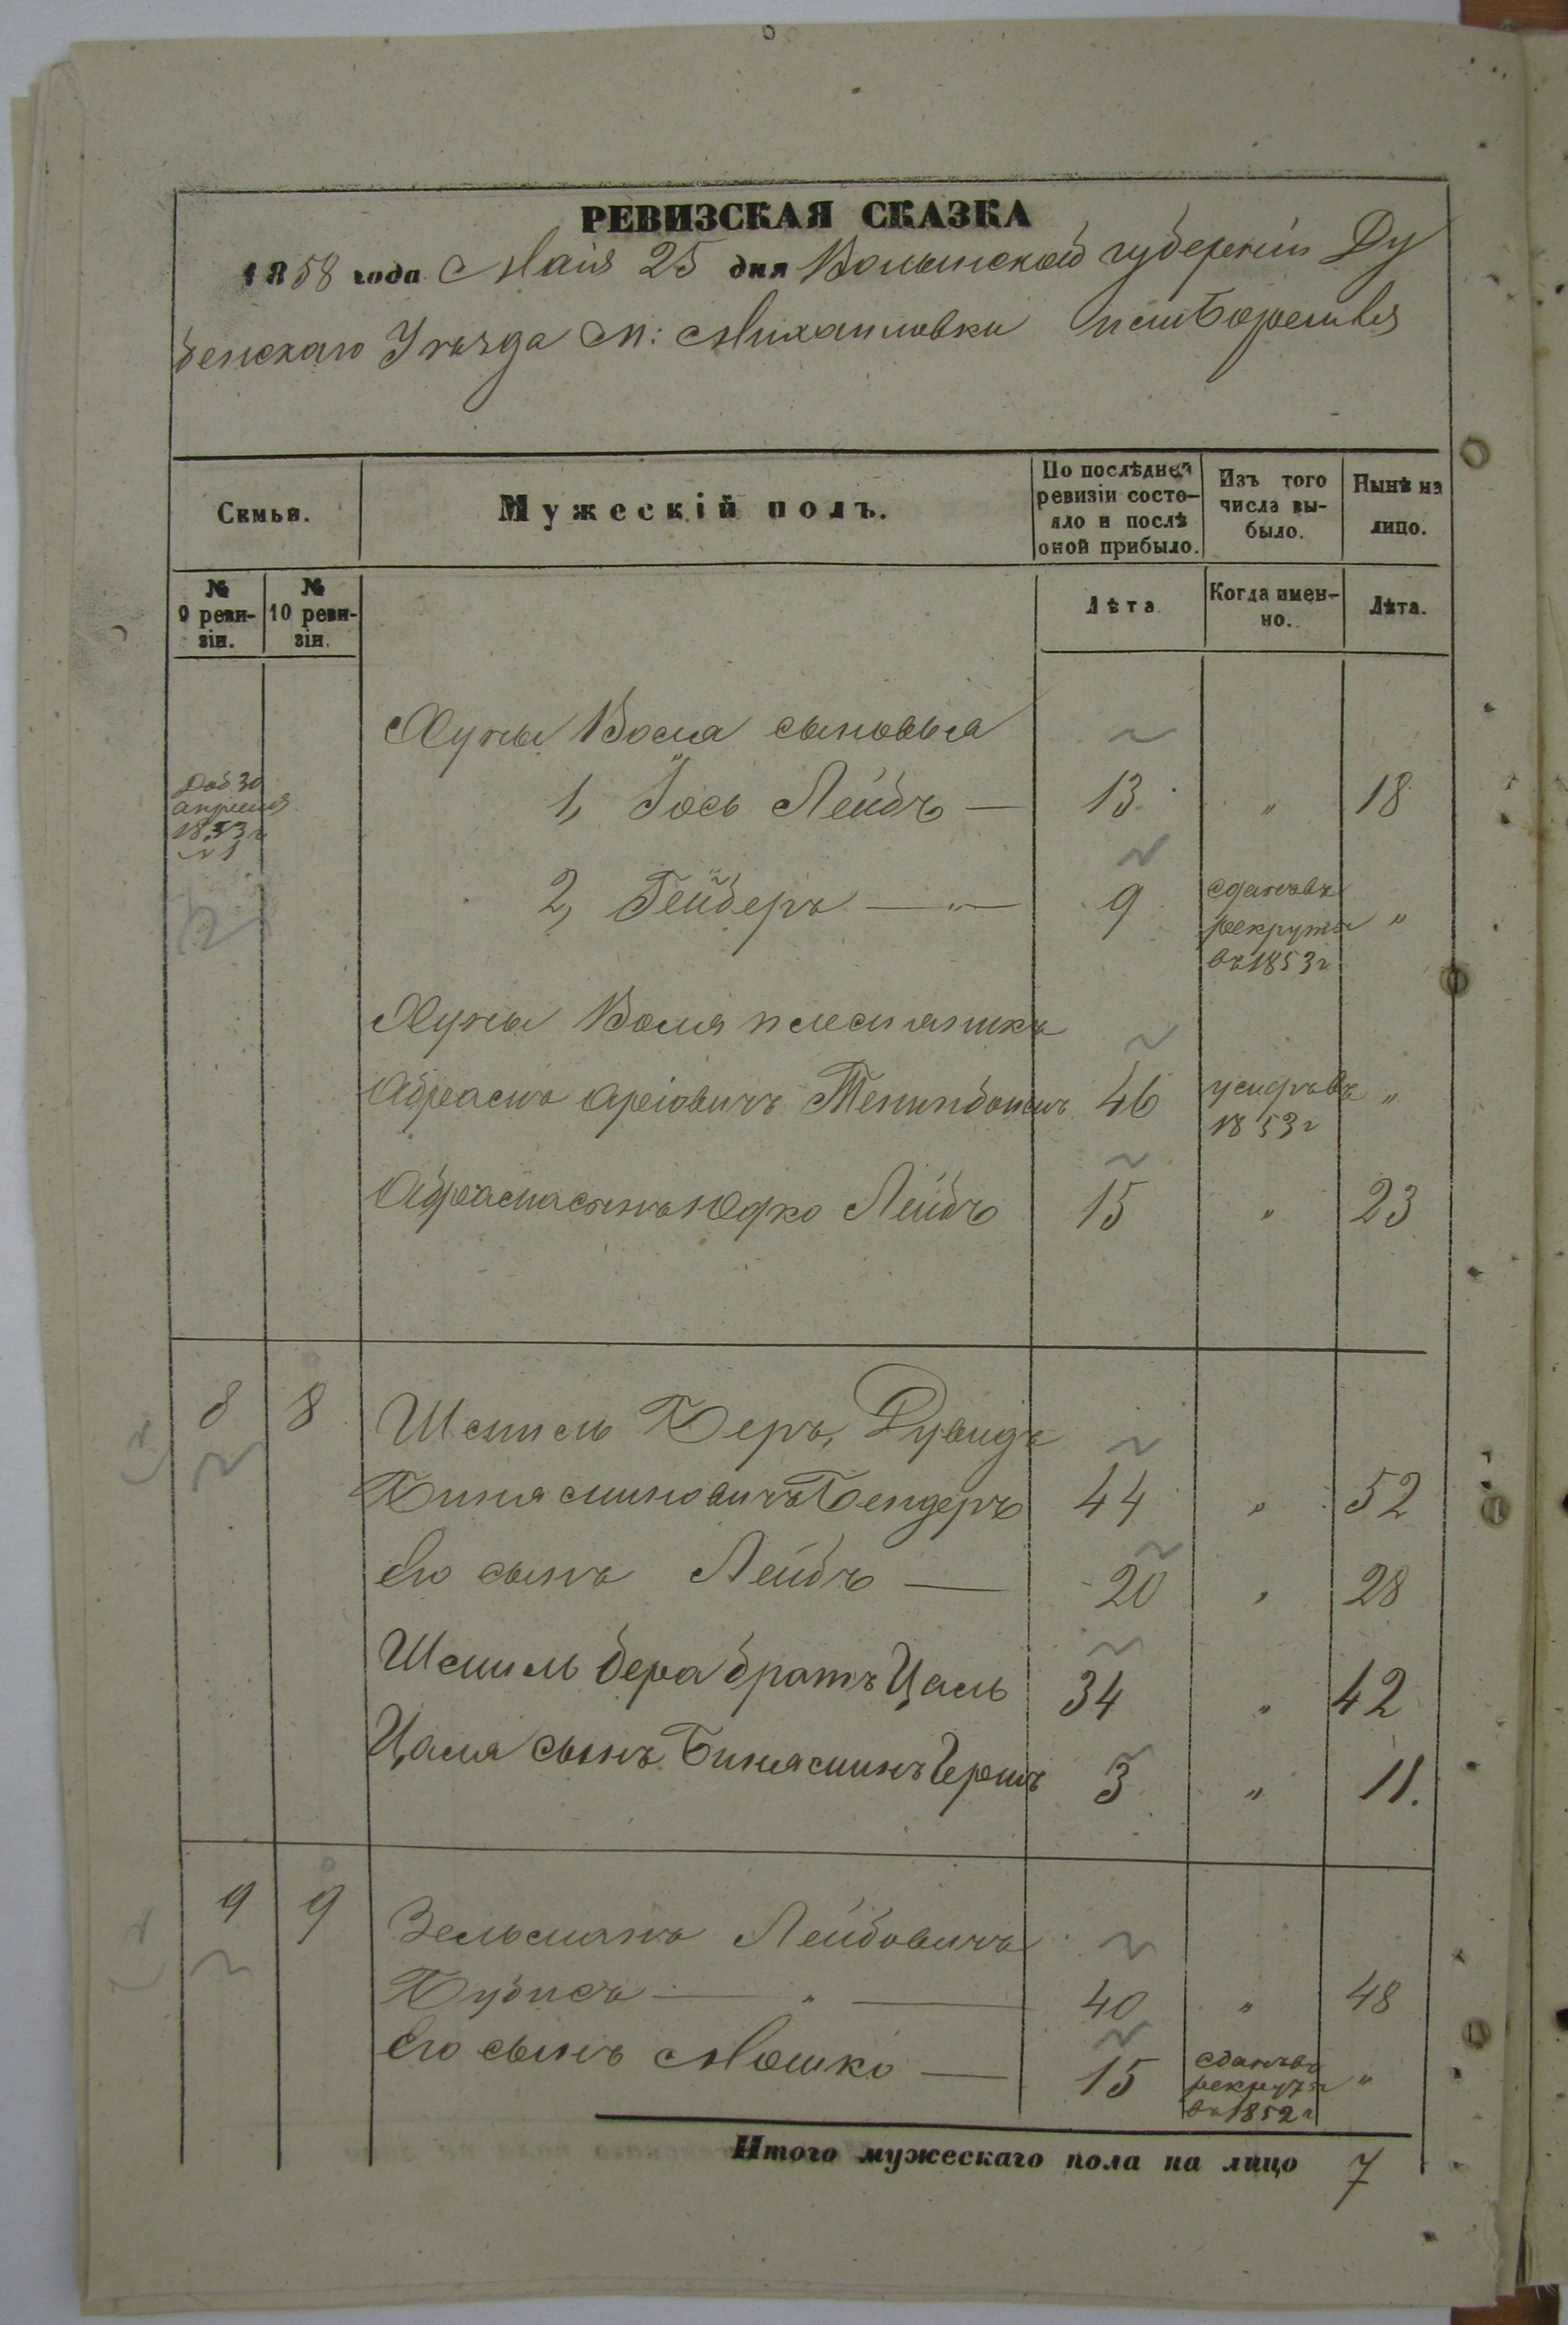 РЕВИЗСКАЯ СКАЗКА
1858 года Маія 25 дня Волынской губерніи Ду
бенскаго Уѣзда М: Михайловки
Семьи.
Мужескій полъ.
По послѣдней ревизіи состо-
яло и послѣ
оной прибыло.
Изъ того
числа вы-
было.
Нынѣ на
лицо.
№
9 реви-
зіи.
№
10 реви-
зіи.
Лѣта
Когда имен-
но.
Лѣта.
Хуны Воля сыновья
Доб 30
апрѣля
1853 г
№ 1
1, Іось Лейбъ — 13 " 18
2, Гейберъ — " — 9 "
сданъ въ
рекруты
въ 1853 г
Хуны Воля племянникъ
Абрамъ Аріовичъ 46 "
умеръ въ
1853 г
Абрама сынъ Юдко Лейбъ 15 " 23
8 8 Шмиль Беръ, Дувидъ
Биняминовичъ Бендеръ 44 " 52
Его сынъ Лейбъ — 20 " 28
Шмиль Бера братъ Цаль 34 " 42
Цаля сынъ Биняминъ Гершъ 3 " 11.
9 9 Зельманъ Лейбовичъ
Бубисъ — " — 40 " 48
Его сынъ Мошко — 15 "
сданъ въ
рекруты
въ 1852 г
Итого мужескаго пола на лицо 7